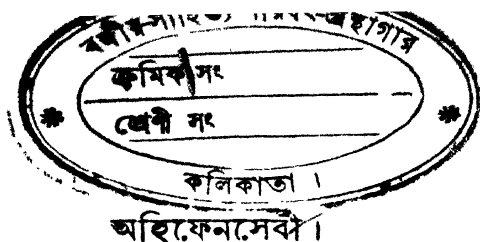 বঙ্গীয়-সাহিত্য পরিষৎ গ্রন্থাগার
ক্রমিক সং
শ্রেণী সং
কলিকাতা ।
অহিফেনসেবী।